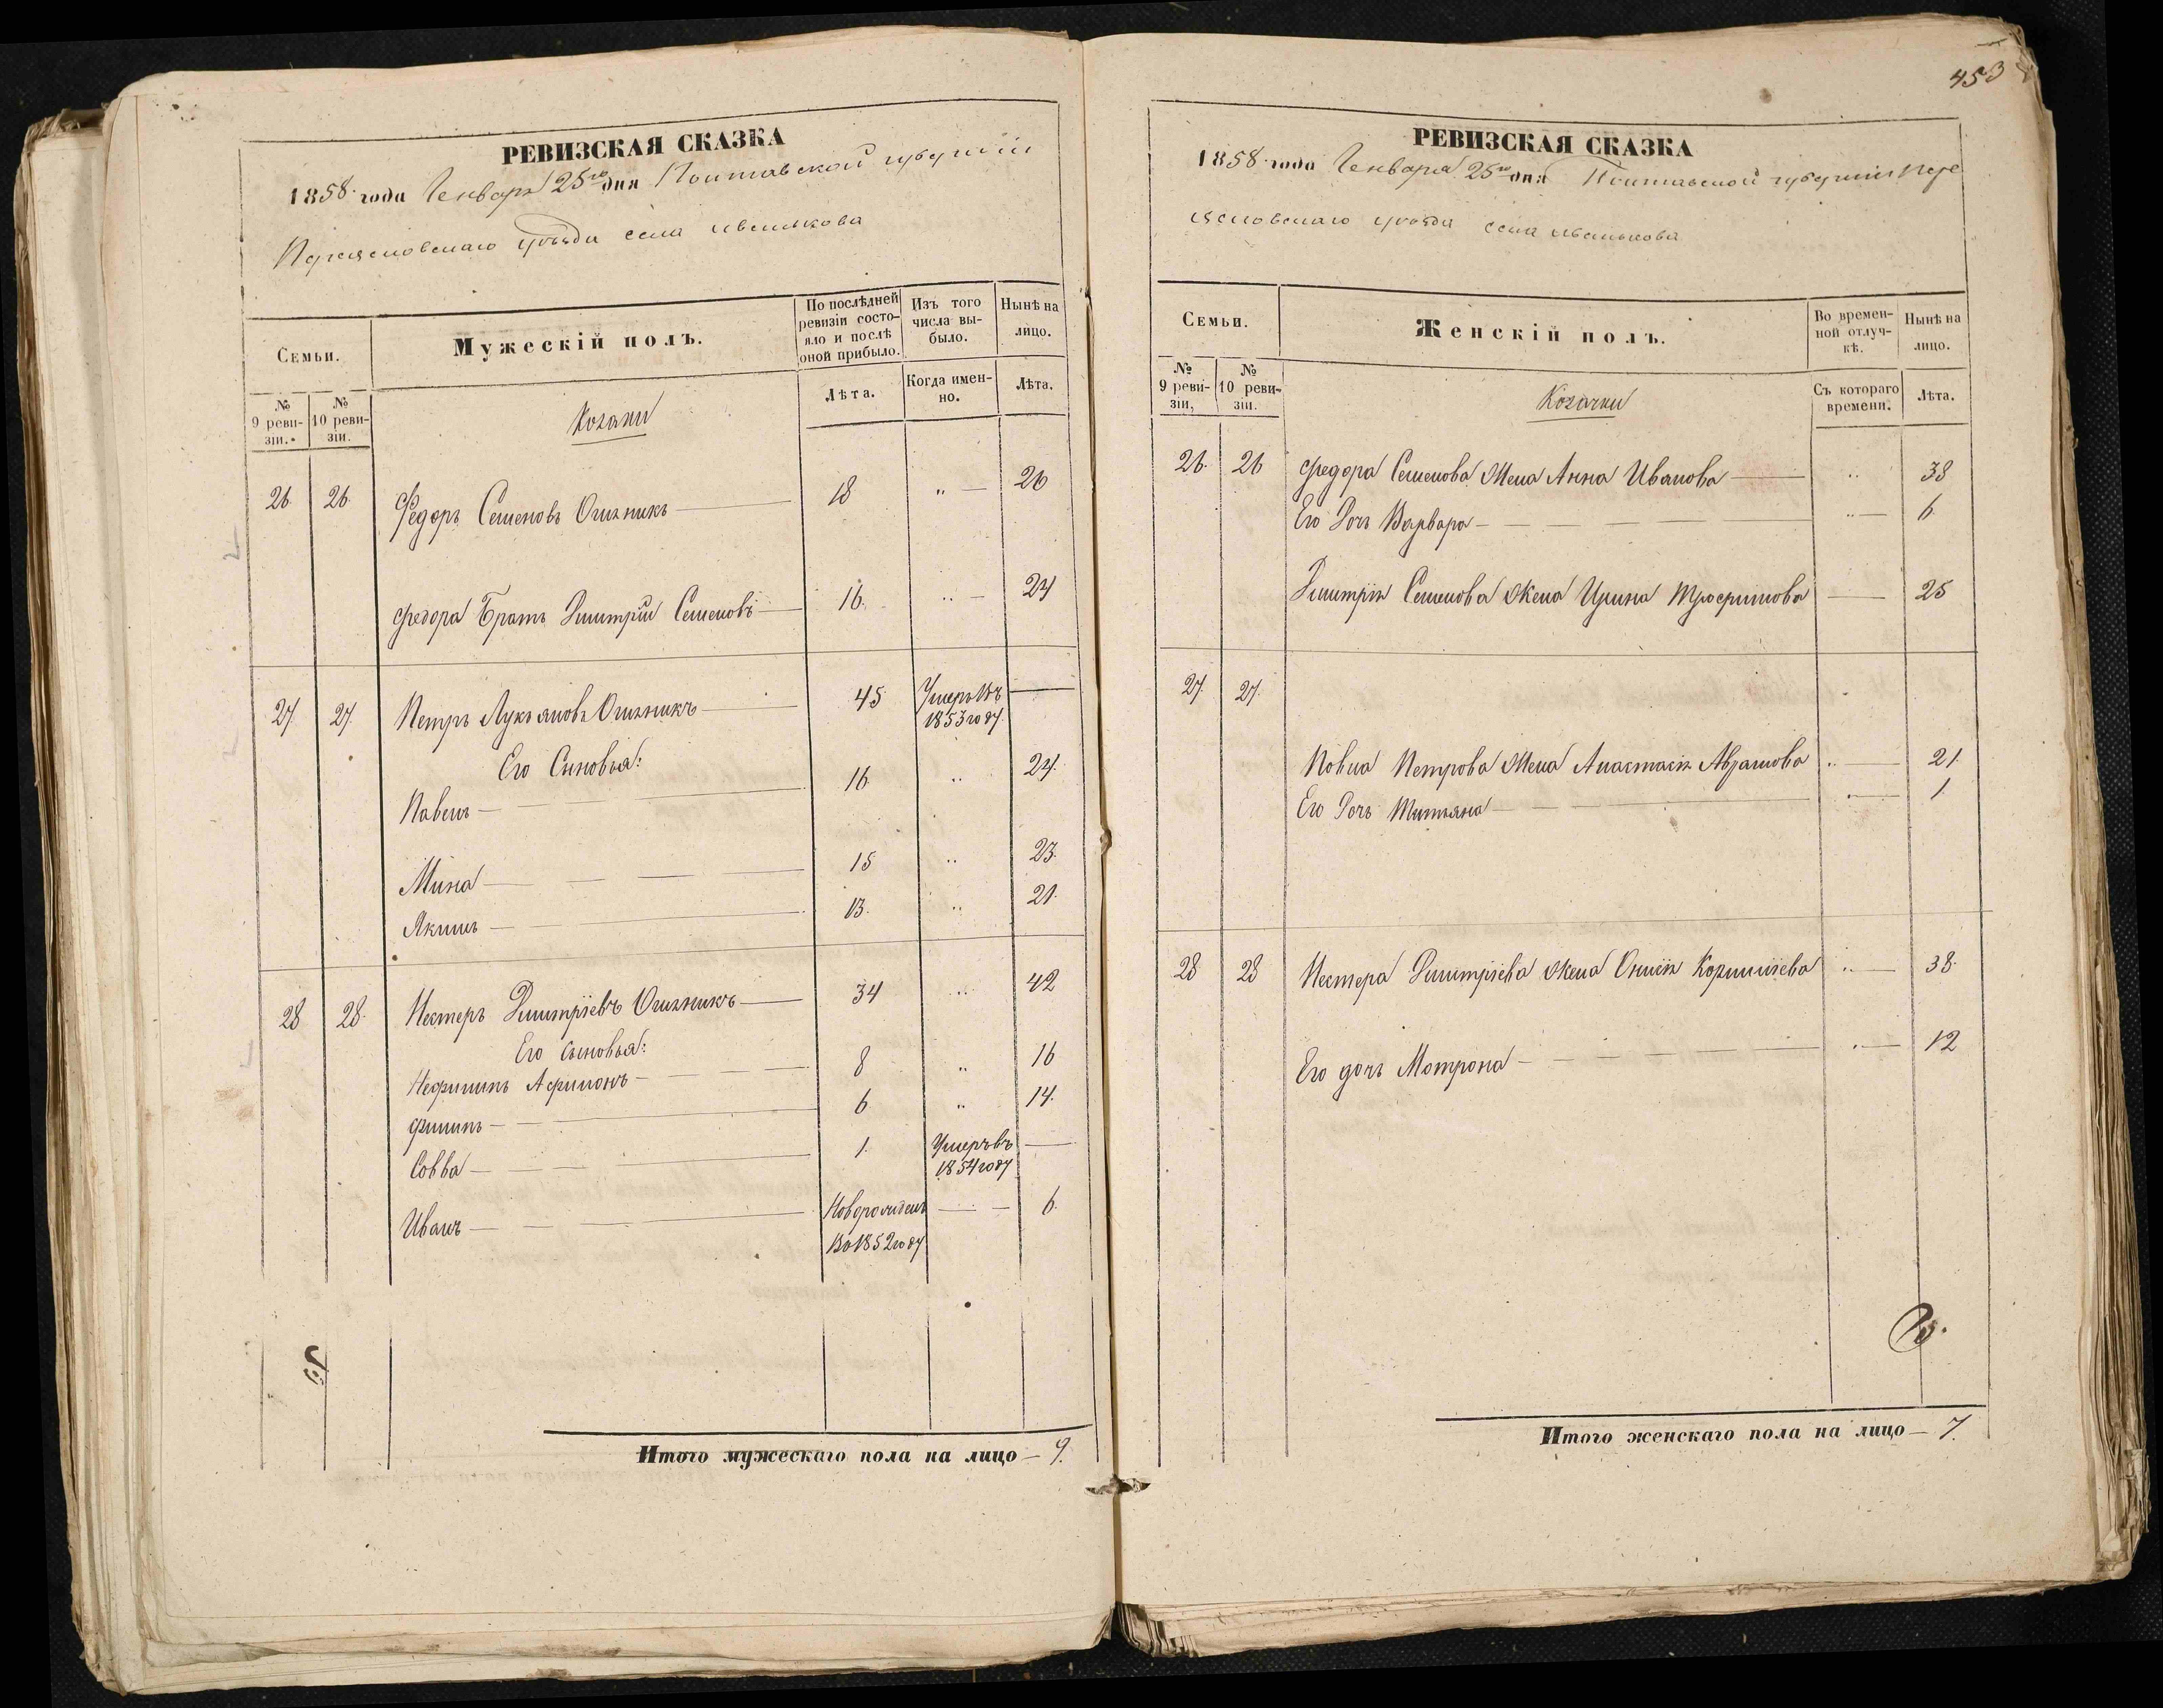 453
РЕВИЗСКАЯ СКАЗКА
1858 года Генваря 25го дня Полтавской губернии
Переясловского уѣзда села Ивалькова
Семьи.
Мужескій полъ.
По послѣдней ревизіи состояло и послѣ оной прибыло.
Изъ того числа выбыло.
Нынѣ на лицо.
№ 9 ревизіи.
№ 10 ревизіи.
Козаки
Лѣта.
Когда именно.
Лѣта.
26 26 Федоръ Семеновъ 18 " — 26
Федора Братъ Дмитрій Семеновъ 16. " — 24
27. 27. Петръ Лукьяновъ 45 Умеръ Въ 1853 году —
Его Сыновья:
Павелъ 16 " 24.
Мина 15 " 23.
Якимъ 13. " 21.
28 28. Нестеръ Дмитріевъ 34 " 42
Его сыновья:
8 " 16
Филипъ 6 " 14.
Совва 1. Умеръ въ 1854 году —
Иванъ Новорожденъ Во 1852 году — 6.
Итого мужескаго пола на лицо — 9.
РЕВИЗСКАЯ СКАЗКА
1858 года Генваря 25го дня Полтавской губернии Пере
ясловскаго уѣзда села Ивалькова
Семьи.
Женскій полъ.
Во временной отлучкѣ.
Нынѣ на лицо.
№ 9 ревизіи,
№ 10 ревизіи.
Козачки
Съ котораго времени.
Лѣта.
26. 26 Федора Семенова Жена Анна Иванова " 38
Его Дочь Варвара " — 6.
Дмитрія Семенова Жена Ирина Трофимова — 25
27. 27.
Повла Петрова Жена Анастасія Аврамова " — 21.
Его Дочь Татьяна " — 1.
28 28 Нестера Дмитріева Жена Корниліева " — 38.
Его дочь Мотрона " — 12
Итого женскаго пола на лицо — 7.